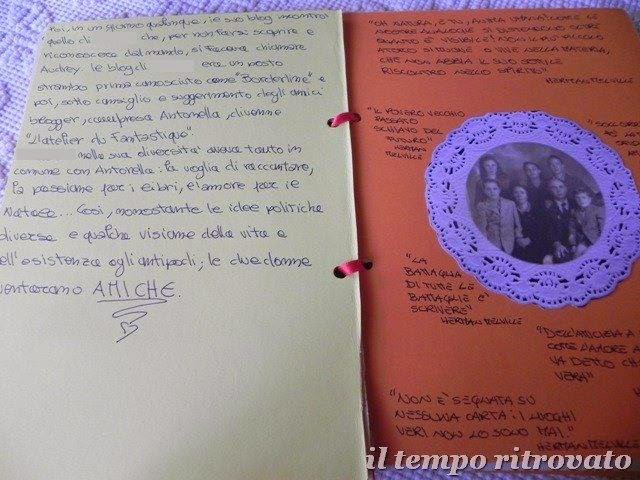 Poi, in un giorno qualunque, le suo blog incontrò
quello di che, per non farsi scoprire e
riconoscere dal mondo, si faceva chiamare
Audrey. le blog di era un posto
strambo prima conosciuto come "Borderline" e
poi, sotto consiglio e suggerimento degli amici
blogger, compresa Antonella, divenne
"L'atelier du Fantastique".
nella sua diversità aveva tanto in
comune con Antonella: la voglia di raccontare,
la passione per i libri, l'amore per le
Natale... Così, nonostante le idee politiche
diverse e qualche visione della vita e
dell'esistenza agli antipodi, le due donne
diventarono AMICHE.
"OH NATURA, E TU, ANIMA UMANA! COME LE
VOSTRE ANALOGIE SI
QUANTO È VISIBILE! NON C'È IL PIÙ PICCOLO
ATOMO SI MUOVE O VIVE NELLA MATERIA,
CHE NON ABBIA IL SUO SIMILE
RISCONTRO NELLO SPIRITO"
HERMAN MELVILLE
"IL POVERO VECCHIO
PASSATO
SCHIAVO DEL
FUTURO"
HERMAN
MELVILLE
"LA
BATTAGLIA
DI TUTTE LE
BATTAGLIE È
SCRIVERE"
HERMAN MELVILLE
COME L'AMORE A
VA DETTO CH
VERA"
"NON È SEGNATA SU
NESSUNA CARTA: I LUOGHI
VERI NON LO SONO MAI."
HERMAN MELVILLE
il tempo ritrovato